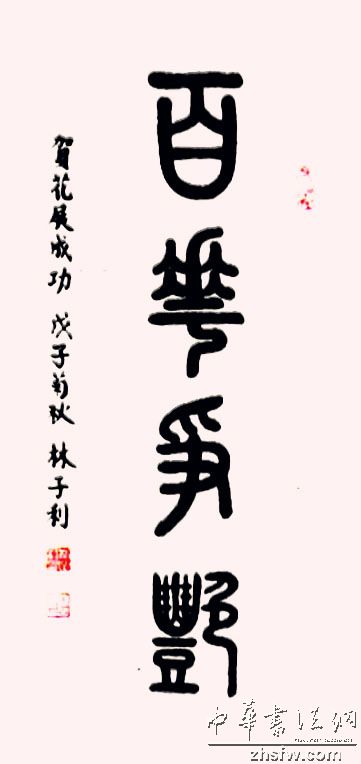 百華爭艷
賀花展成功 戊子菊秋 林子利
中華書法網
zhsfw.com